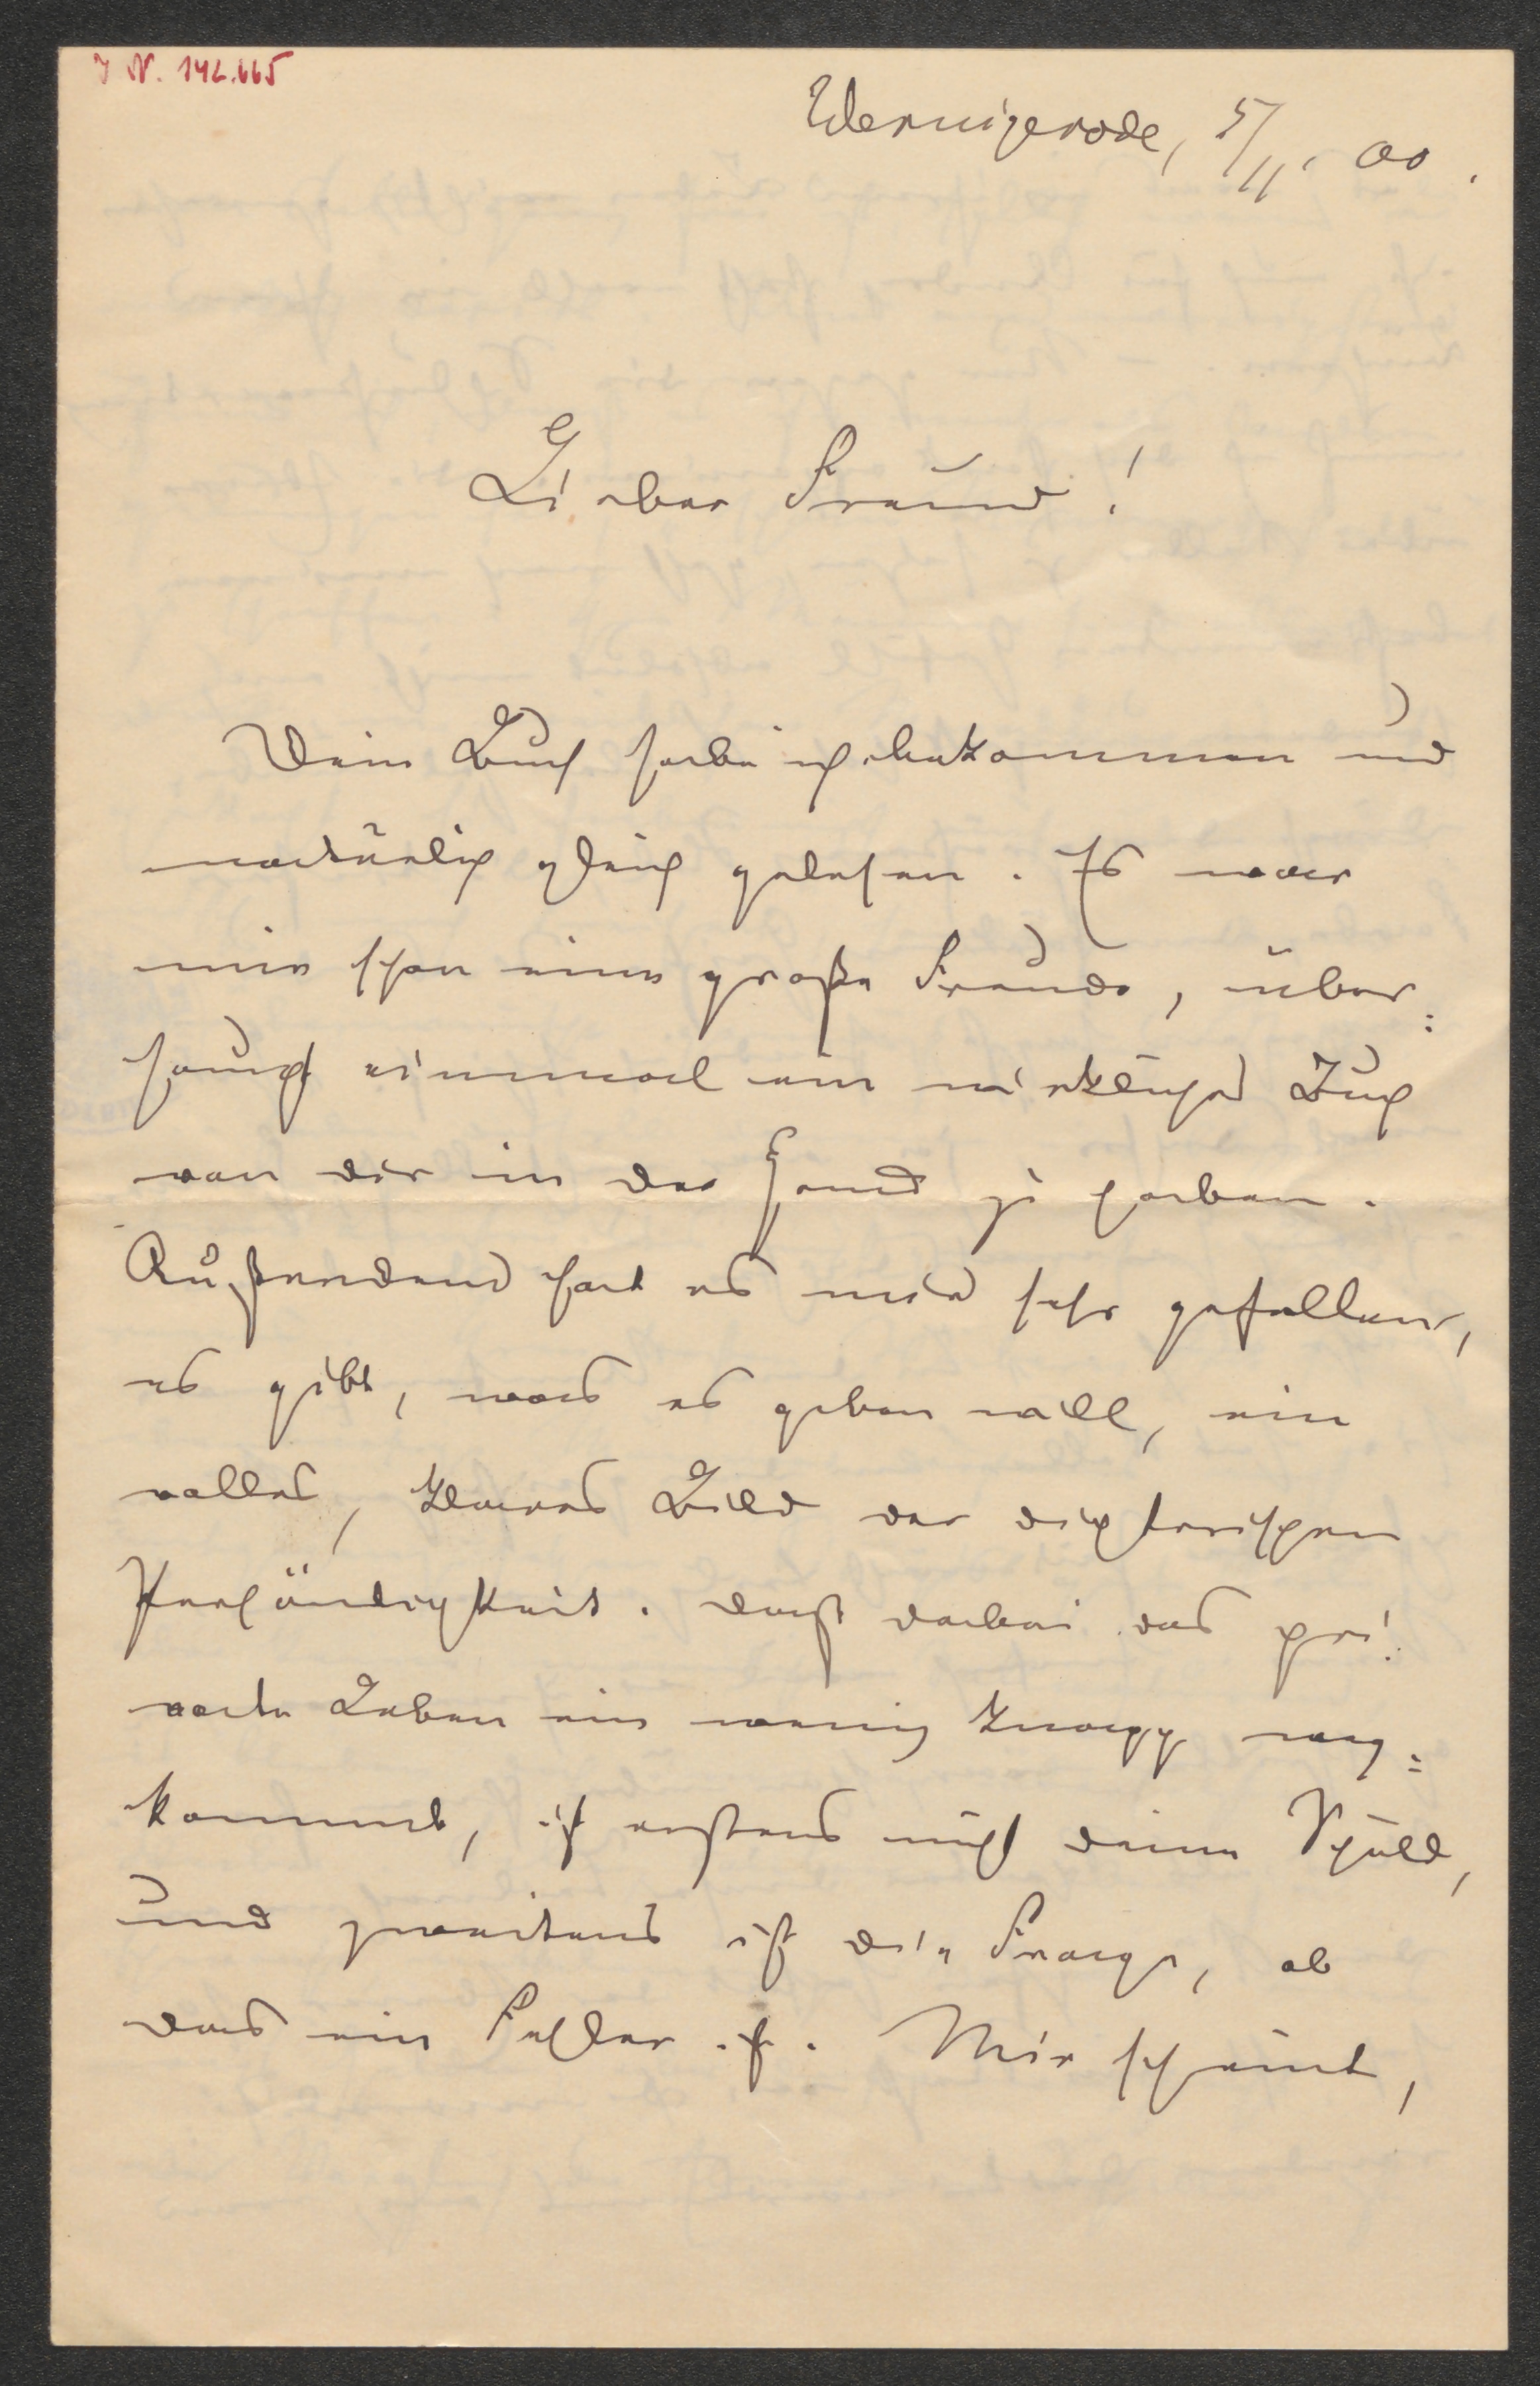 J. N. 142.665
Wernigerode, 5/11. 00.
Lieber Freund!
Dein Buch habe ich bekommen und
natürlich gleich gelesen. Es war
mir schon eine große Freude, über=
haupt einmal ein wirkliches Buch
von dir in der Hand zu haben.
Außerdem hat es mir sehr gefallen,
es gibt, was es geben will, ein
volles, klares Bild der dichterischen
Persönlichkeit. Daß dabei das pri=
vate Leben ein wenig knapp weg=
kommt, ist erstens nicht deine Schuld,
und zweitens ist die Frage, ob
das ein Fehler ist. Mir scheint,